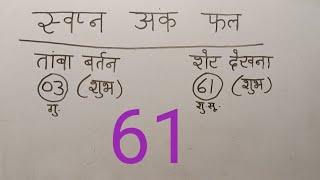 स्वप्न अंक फल
तांबा बर्तन शेर देखना
03 (शुभ) 61 (शुभ)
गु. शु. सू.
61